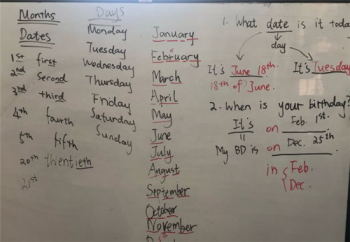 Months
Dates
1st first
2nd second
3rd third
4th fourth
5th fifth
20th twentieth
21st
Days
Monday
Tuesday
Wednesday
Thursday
Friday
Saturday
Sunday
January
February
March
April
May
June
July
August
September
October
November
1. What date is it toda
day
It's June 18th. It's Tuesday
18th of June.
2. When is your birthday?
It's on Feb. 1st.
My BD is on Dec. 25th
in Feb.
Dec.